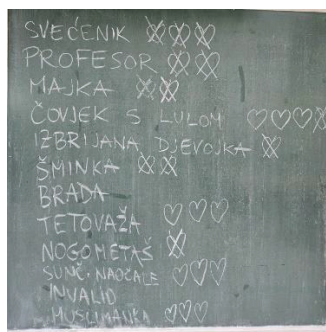 SVEĆENIK
PROFESOR
MAJKA
ČOVJEK S LULOM
IZBRIJANA DJEVOJKA
ŠMINKA
BRADA
TETOVAŽA
NOGOMETAŠ
SUNČ. NAOČALE
INVALID
MUSLIMANKA